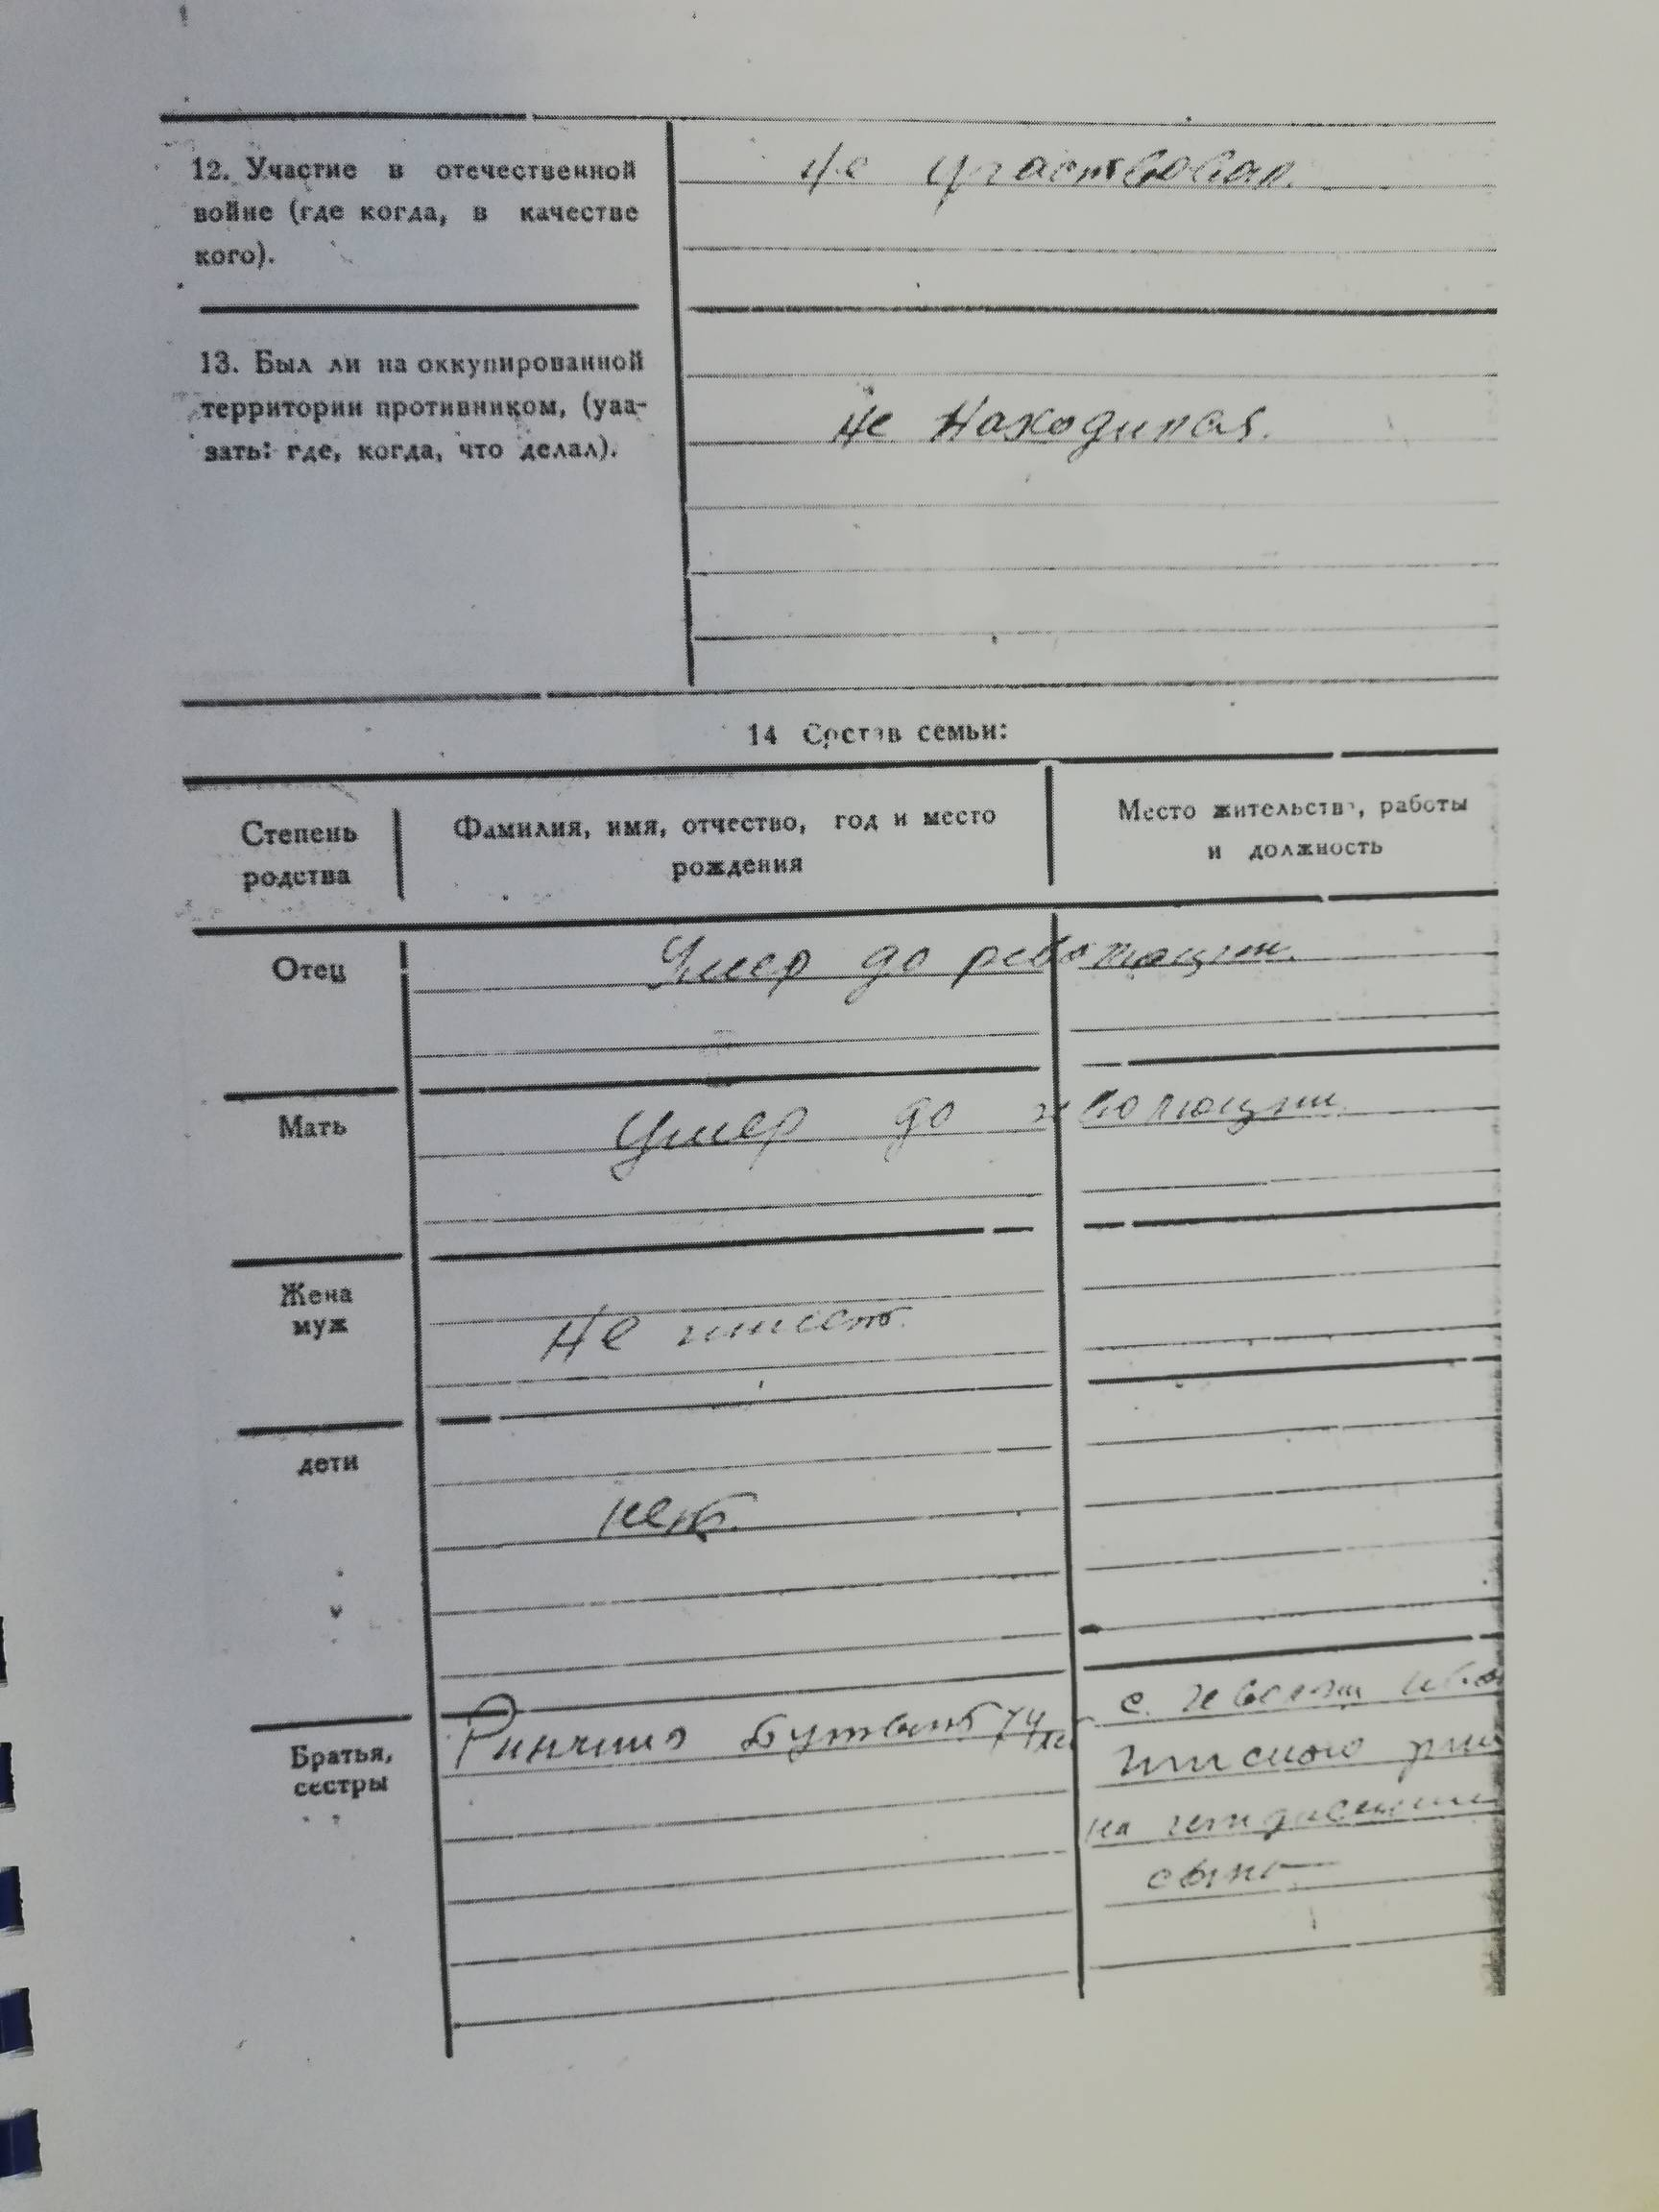 12. Участие в отечественной
войне (где когда, в качестве
кого).
не участвовал.
13. Был ли на оккупированной
территории противником, (уаа-
зать: где, когда, что делал).
не находился.
14 Состав семьи:
Степень
родства
Фамилия, имя, отчество, год и место
рождения
Место жительства, работы
и должность
Отец
Умер до революции.
Мать
Умер до революции.
Жена
муж
Не имеет.
дети
нет.
Братья,
сестры
Ринчино 74
с.
на